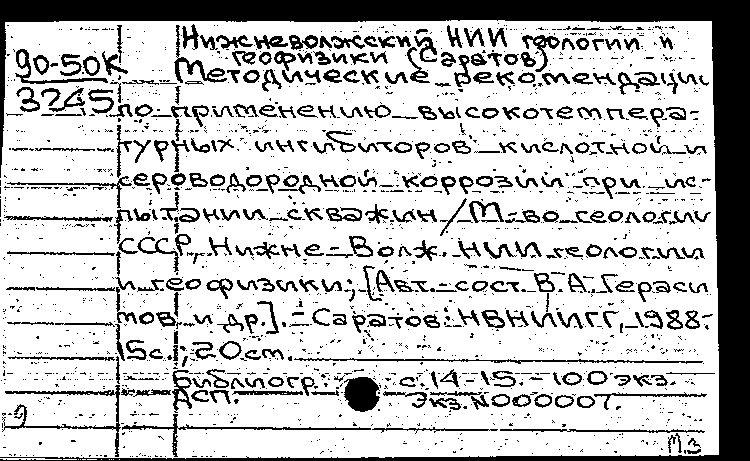 Нижневолжский НИИ геологии и
геофизики (Саратов)
90-50к
3245
Методические рекомендации
по применению высокотемпера-
турных ингибиторов кислотной и
сероводородной коррозии при ис-
пытании скважин / М-во геологии
СССР, Нижне-Волж. НИИ геологии
и геофизики; [Авт.-сост. В.А. Гераси
мов и др.]. - Саратов: НВНИИГГ, 1988.-
15с.; 20см.
Библиогр.: с. 14-15. - 100 экз.
ДСП. Экз. N000007.
9
М.З